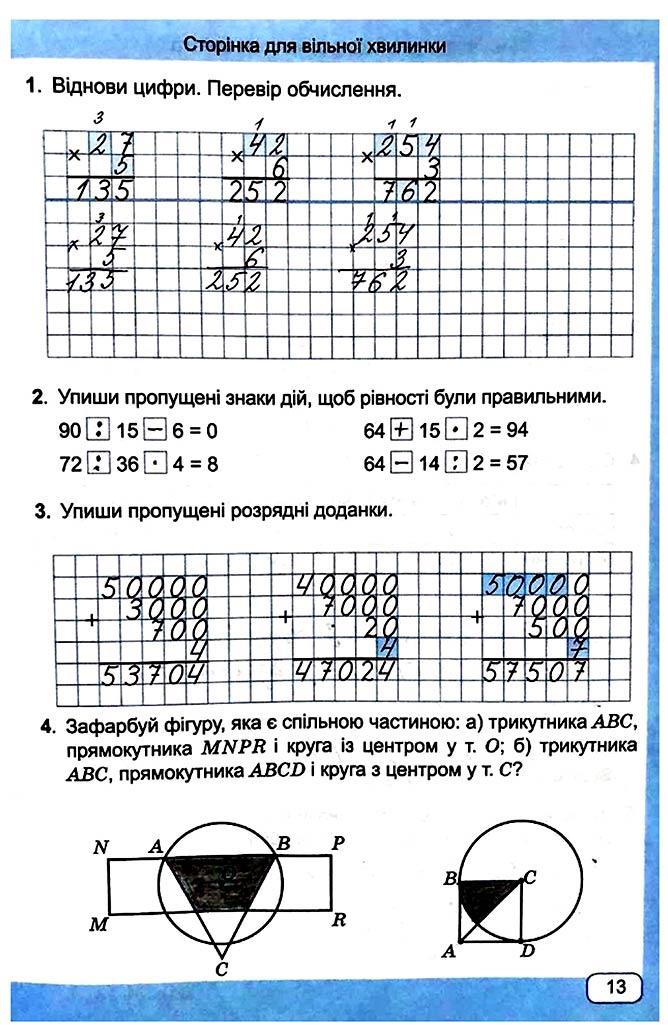 Сторінка для вільної хвилинки
1. Віднови цифри. Перевір обчислення.
3 1 1 1
× 27 × 42 × 254
5 6 3
135 252 762
3 1 1 1
× 27 × 42 × 254
5 6 3
135 252 762
2. Упиши пропущені знаки дій, щоб рівності були правильними.
90 : 15 − 6 = 0 64 + 15 · 2 = 94
72 : 36 · 4 = 8 64 − 14 : 2 = 57
3. Упиши пропущені розрядні доданки.
50000 40000 50000
+ 3000 + 7000 + 7000
700 20 500
4 4 7
53704 47024 57507
4. Зафарбуй фігуру, яка є спільною частиною: а) трикутника ABC,
прямокутника MNPR і круга із центром у т. O; б) трикутника
ABC, прямокутника ABCD і круга з центром у т. C?
N A B P
B C
M R
A D
C
13